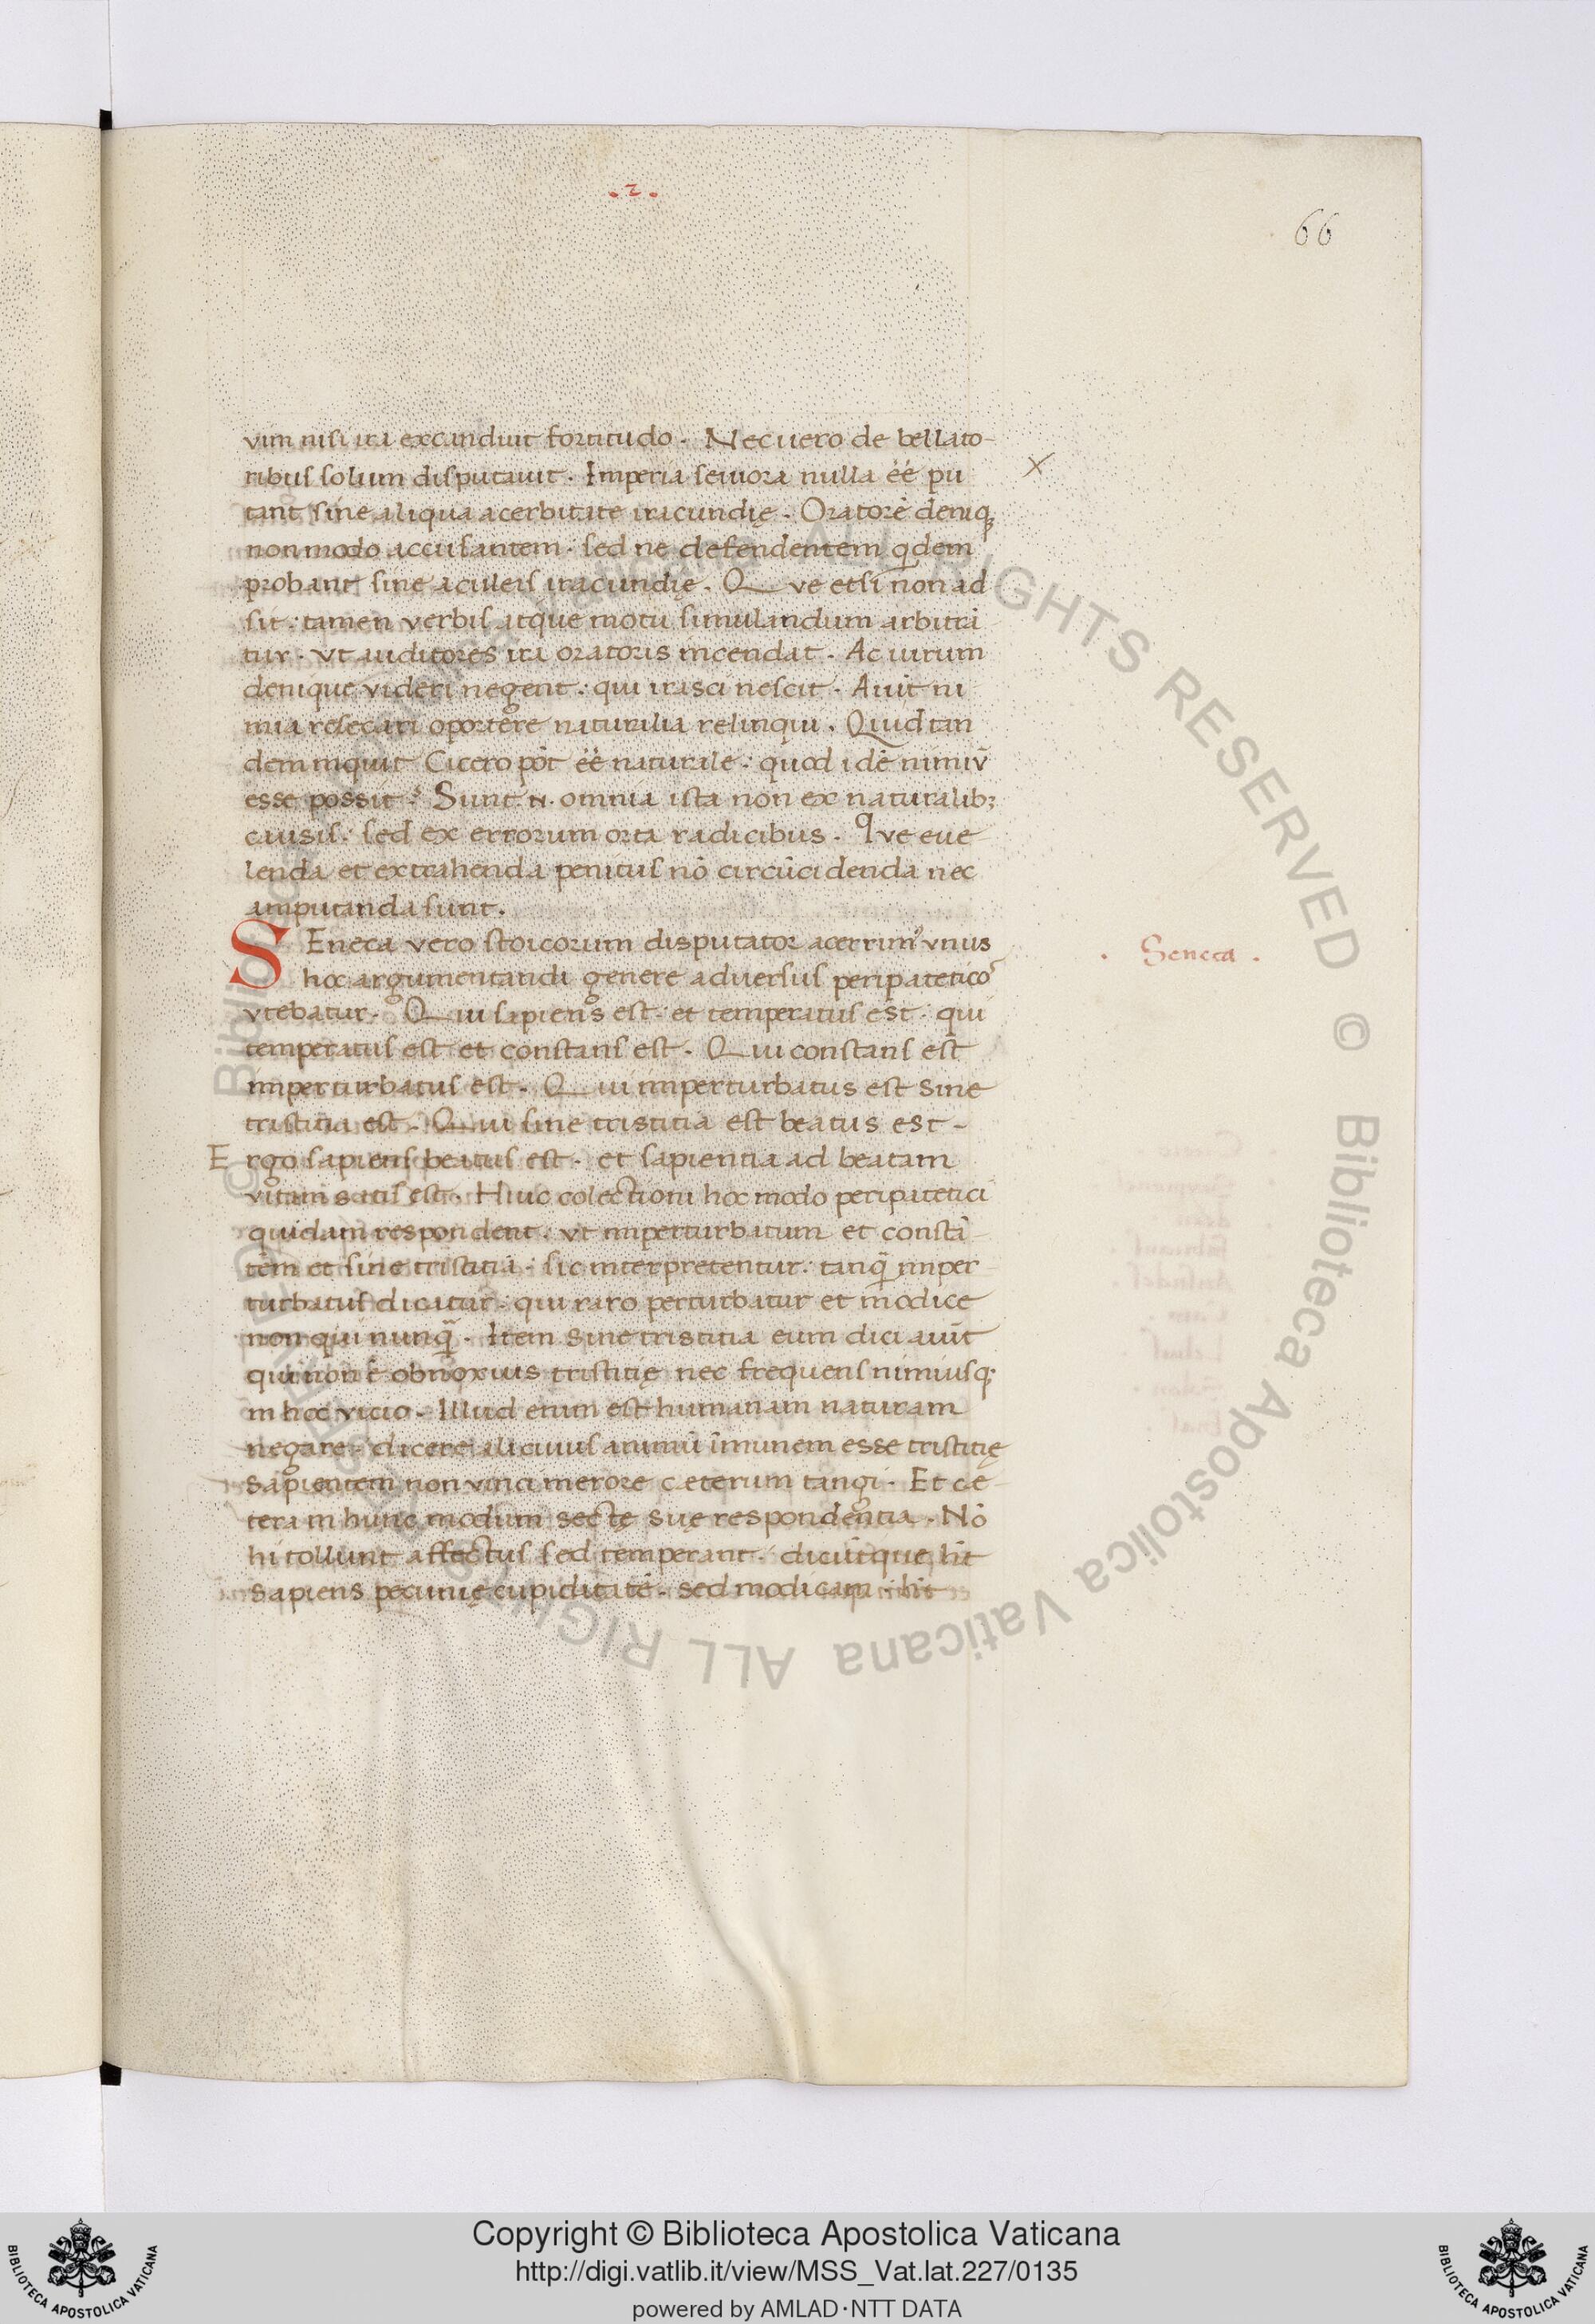 .2.
66
vim nisi ira excanduit fortitudo. Nec uero de bellato-
ribus solum disputauit. Imperia seuiora nulla eē pu
tant sine aliqua acerbitate iracundię. Oratorē deniq;
non modo accusantem. sed ne defendentem qͥdem
probant sine aculeis iracundię. Que etsi non ad
sit: tamen verbis atque motu simulandum arbitra
tur. vt auditores ira oratoris incendat. Ac uirum
denique videri negent: qui irasci nescit. Aiūt ni
mia resecari oportere naturalia relinqui. Quid tan
dem inquit Cicero pōt eē naturale: quod idē nimiū
esse possit? Sunt .n. omnia ista non ex naturalib;
causis: sed ex errorum orta radicibus. Que eue-
lenda et extrahenda penitus nō circūcidenda nec
amputanda sunt.
SEneca vero stoicorum disputator acerrimꝰ vnus
. Seneca .
hoc argumentandi genere aduersus peripatetico᷒
vtebatur. Qui sapiens est: et temperatus est: qui
temperatus est et constans est. Qui constans est
imperturbatus est. Qui imperturbatus est sine
tristitia est. Qui sine tristitia est beatus est.
Ergo sapiens beatus est. et sapientia ad beatam
vitam satis est. Huic colectioni hoc modo peripatetici
quidam respondent: vt imperturbatum et constā-
tem et sine tristitia: sic interpretentur: tanqͣ̄ imper-
turbatus dicatur: qui raro perturbatur et modice
non qui nunqͣ̄. Item sine tristitia eum dici aiūt
qui non ē obnoxius tristitię nec frequens nimiusq;
in hoc vicio. Illud enim est humanam naturam
negare: dicere alicuius animū īmunem esse tristitię
sapientem non vinci merore cæterum tangi. Et ce-
tera in hunc modum sectę suę respondentia. Nō
hi tollunt affectus sed temperant. dicūtque h̄t
sapiens pecunię cupiditatē. sed modicam. h̄t
Copyright © Biblioteca Apostolica Vaticana
http://digi.vatlib.it/view/MSS_Vat.lat.227/0135
powered by AMLAD·NTT DATA
BIBLIOTECA APOSTOLICA VATICANA
BIBLIOTECA APOSTOLICA VATICANA
© Biblioteca Apostolica Vaticana ALL RIGHTS RESERVED © Biblioteca Apostolica Vaticana ALL RIGHTS RESERVED